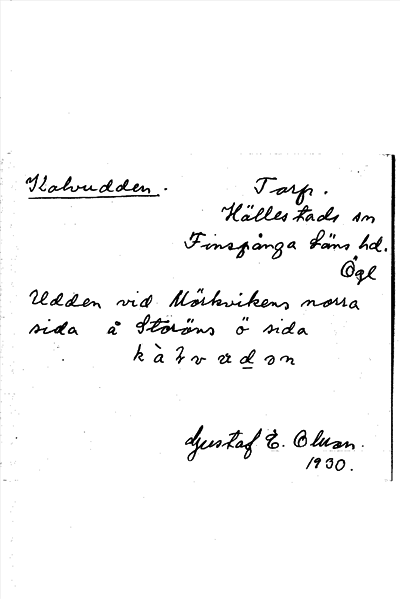 Kalvudden. Torp.
Hällestads sn
Finspånga läns hd.
Ögl
Udden vid Mörkvikens norra
sida å Storöns ö sida
Gustaf E. Olson.
1930.